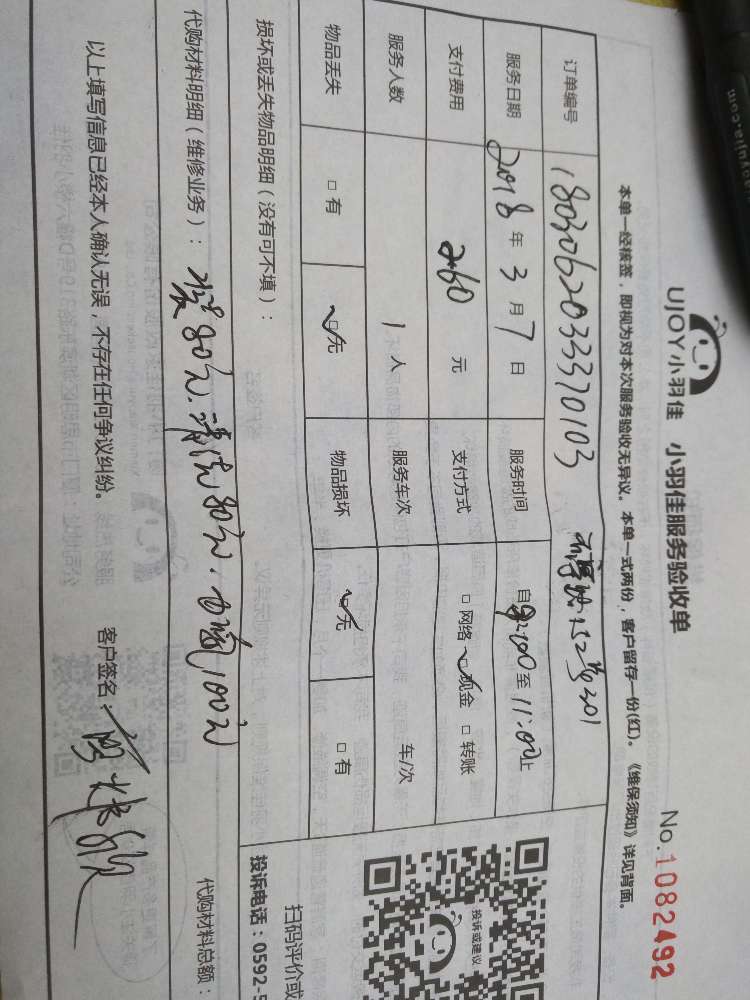 UJOY小羽佳 小羽佳服务验收单
No.1082492
本单一经核签，即视为对本次服务验收无异议。本单一式两份，客户留存一份(红)。《维保须知》详见背面。
订单编号 18030620333370103 152号201
服务日期 2018年3月7日 服务时间 自9:00至11:00止
支付费用 260元 支付方式 □网络 ☑现金 □转账
服务人数 1人 服务车次 车/次
物品丢失 □有 ☑无 物品损坏 ☑无 □有
损坏或丢失物品明细（没有可不填）：
代购材料明细（维修业务）： 装80元.清洗80元.加氟100元
代购材料总额：
以上填写信息已经本人确认无误，不存在任何争议纠纷。 客户签名：
投诉或建议
扫码评价或
投诉电话：0592-5